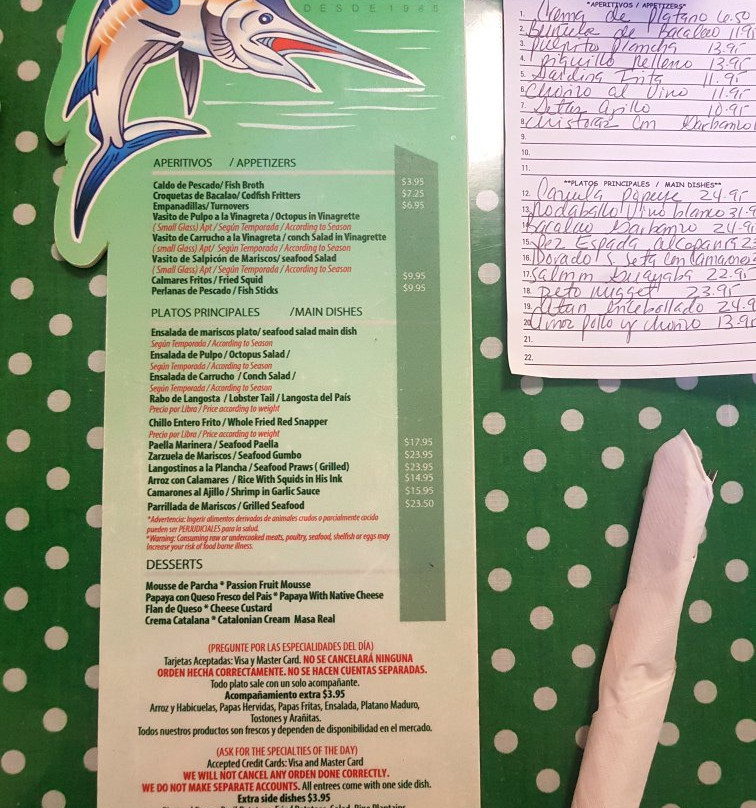 DESDE 1985
APERITIVOS / APPETIZERS
Caldo de Pescado/ Fish Broth $3.95
Croquetas de Bacalao/ Codfish Fritters $7.25
Empanadillas/ Turnovers $6.95
Vasito de Pulpo a la Vinagreta / Octopus in Vinagrette
( Small Glass) Apt / Según Temporada / According to Season
Vasito de Carrucho a la Vinagreta / conch Salad in Vinagrette
( small Glass) Apt/ Según Temporada / According to Season
Vasito de Salpicón de Mariscos/ seafood Salad
( Small Glass) Apt / Según Temporada / According to Season
Calmares Fritos / Fried Squid $9.95
Perlanas de Pescado / Fish Sticks $9.95
PLATOS PRINCIPALES /MAIN DISHES
Ensalada de mariscos plato/ seafood salad main dish
Según Temporada / According to Season
Ensalada de Pulpo / Octopus Salad /
Según Temporada / According to Season
Ensalada de Carrucho / Conch Salad /
Según Temporada / According to Season
Rabo de Langosta / Lobster Tail / Langosta del País
Precio por Libra / Price according to weight
Chillo Entero Frito / Whole Fried Red Snapper
Precio por Libra / Price according to weight
Paella Marinera / Seafood Paella $17.95
Zarzuela de Mariscos / Seafood Gumbo $23.95
Langostinos a la Plancha / Seafood Praws ( Grilled) $23.95
Arroz con Calamares / Rice With Squids in His Ink $14.95
Camarones al Ajillo / Shrimp in Garlic Sauce $15.95
Parrillada de Mariscos / Grilled Seafood $23.50
*Advertencia: Ingerir alimentos derivados de animales crudos o parcialmente cocido
pueden ser PERJUDICIALES para la salud.
*Warning: Consuming raw or undercooked meats, poultry, seafood, shellfish or eggs may
increase your risk of food borne illness.
DESSERTS
Mousse de Parcha * Passion Fruit Mousse
Papaya con Queso Fresco del Pais * Papaya With Native Cheese
Flan de Queso * Cheese Custard
Crema Catalana * Catalonian Cream Masa Real
(PREGUNTE POR LAS ESPECIALIDADES DEL DÍA)
Tarjetas Aceptadas: Visa y Master Card. NO SE CANCELARÁ NINGUNA
ORDEN HECHA CORRECTAMENTE. NO SE HACEN CUENTAS SEPARADAS.
Todo plato sale con un solo acompañante.
Acompañamiento extra $3.95
Arroz y Habicuelas, Papas Hervidas, Papas Fritas, Ensalada, Platano Maduro,
Tostones y Arañitas.
Todos nuestros productos son frescos y dependen de disponibilidad en el mercado.
(ASK FOR THE SPECIALTIES OF THE DAY)
Accepted Credit Cards: Visa and Master Card
WE WILL NOT CANCEL ANY ORDEN DONE CORRECTLY.
WE DO NOT MAKE SEPARATE ACCOUNTS. All entrees come with one side dish.
Extra side dishes $3.95
"APERITIVOS / APPETIZERS"
1. Crema de platano 6.50
2. Buñuelo de Bacalao 11.9
3. Pulpito plancha 13.95
4. Piquillo relleno 13.95
5. Sardina frita 11.95
6. Chorizo al Vino 11.95
7. Setas Grillo 10.95
8. Chistorra con Garbanzo
9.
10.
11.
**PLATOS PRINCIPALES / MAIN DISHES**
12. Cazuela popeye 24.95
13. Rodaballo Vino blanco 31.9
14. Bacalao Garbanzo 24.9
15. Pez Espada alcaparra 2
16. Dorado Seta con camarones
17. Salmon Guayaba 22.95
18. Peto nugget 23.95
19. Atun encebollado 24.9
20. Arroz pollo y chorizo 13.95
21.
22.